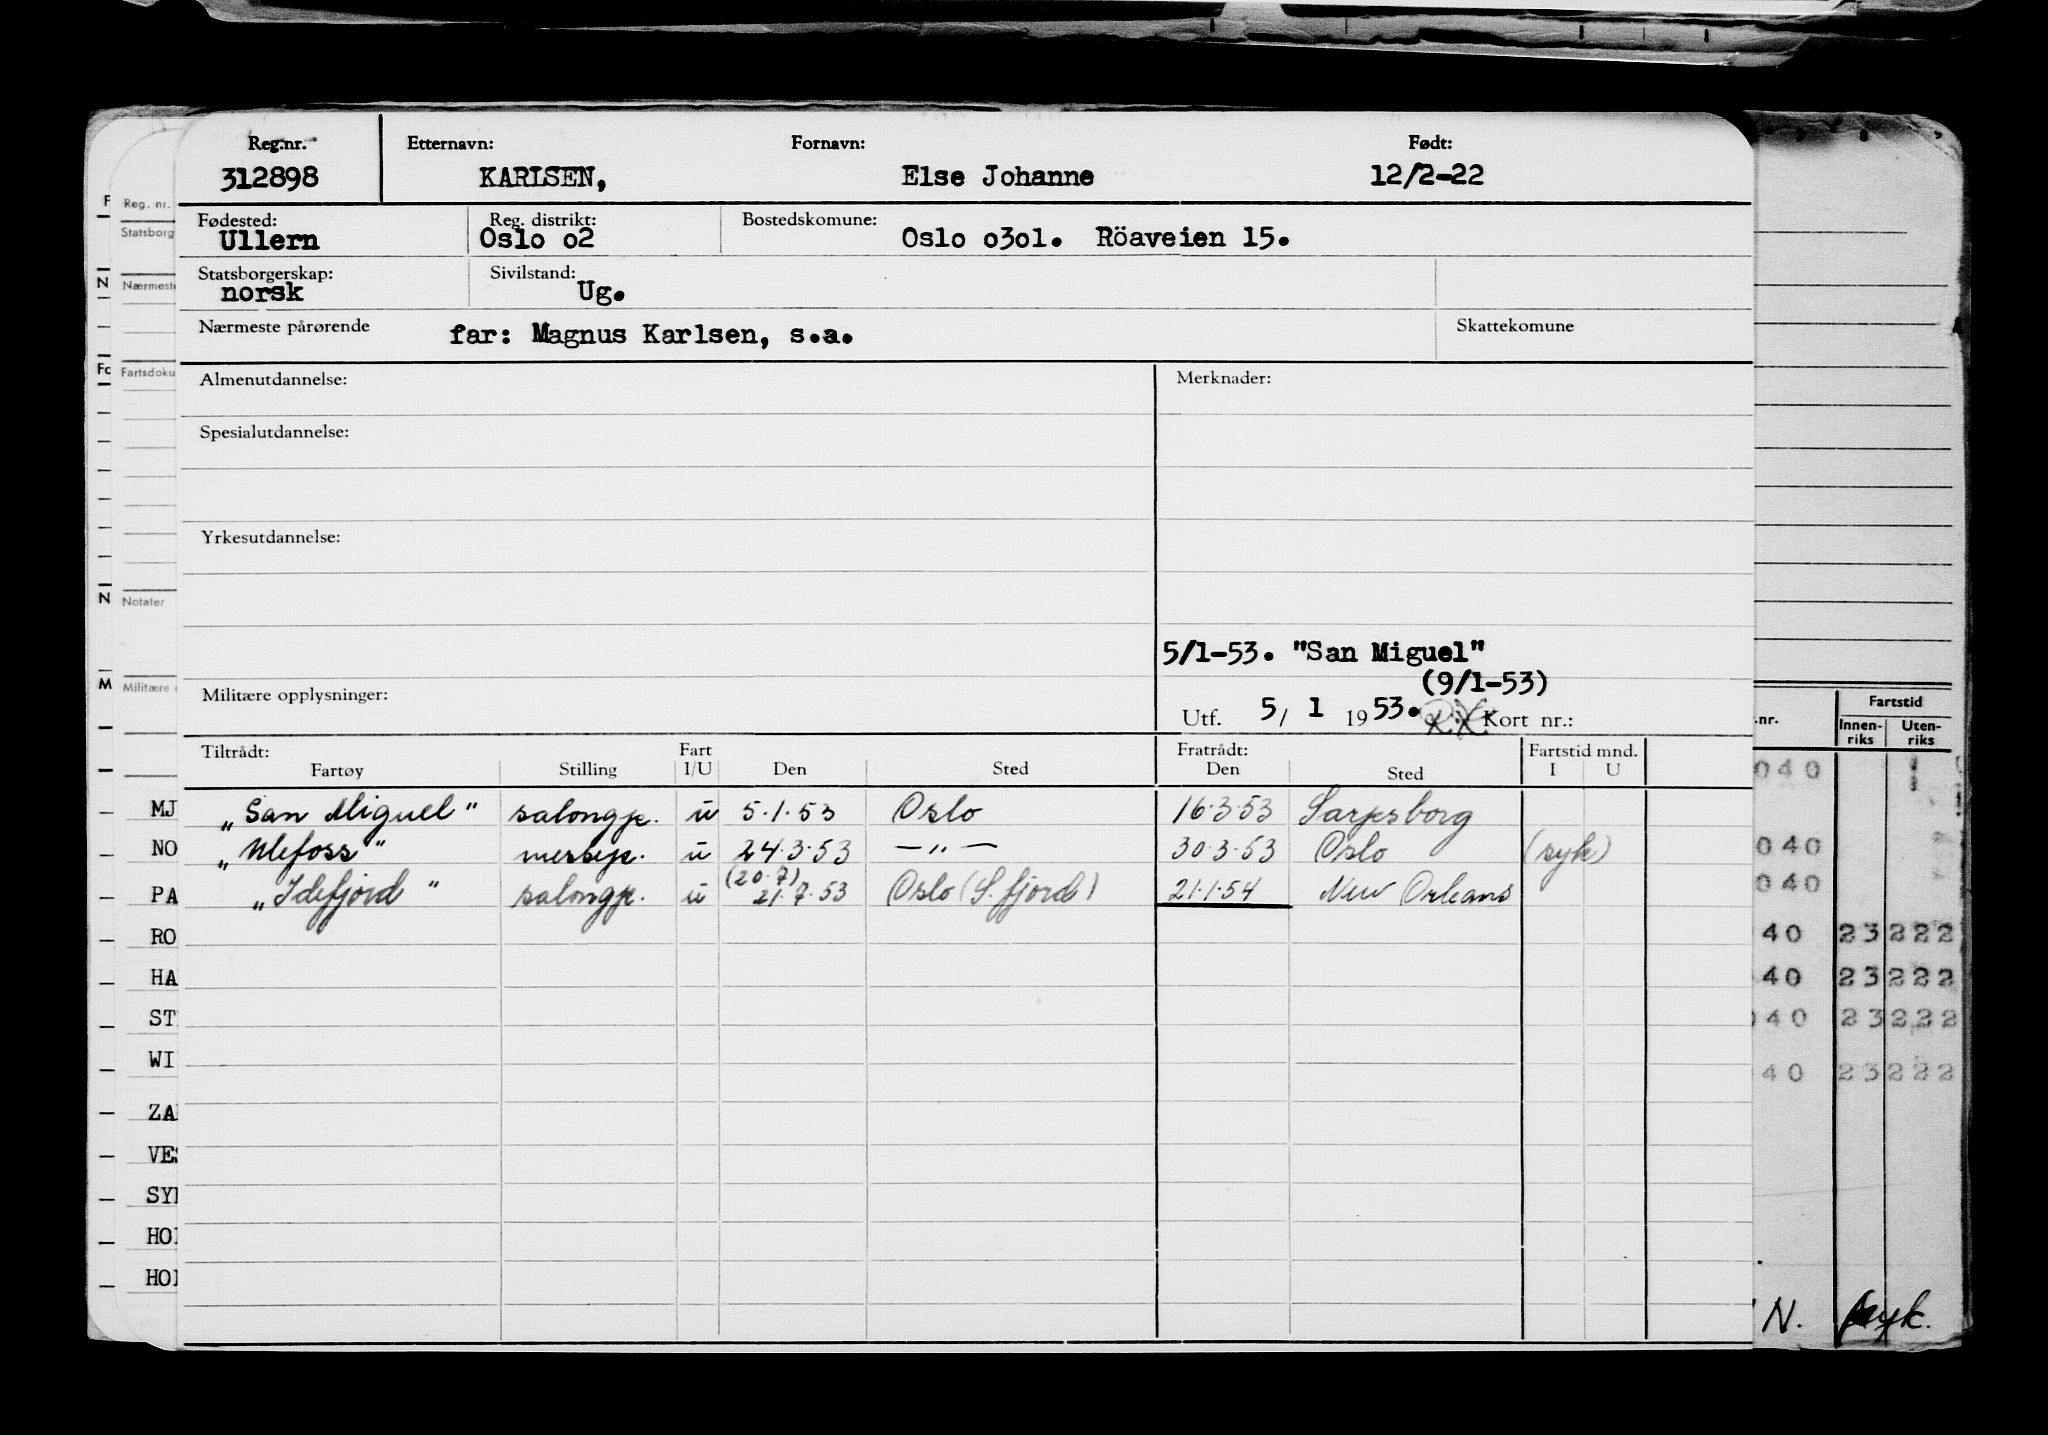 Reg.nr. Etternavn: Fornavn: Født:
312898 KARLSEN, Else Johanne 12/2-22
Fødested: Reg. distrikt: Bostedskomune:
Ullern Oslo o2 Oslo o3o1. Röaveien 15.
Statsborgerskap: Sivilstand:
norsk Ug.
Nærmeste pårørende far: Magnus Karlsen, s.a. Skattekomune
Almenutdannelse: Merknader:
Spesialutdannelse:
Yrkesutdannelse:
5/1-53. "San Miguel"
(9/1-53)
Militære opplysninger:
Utf. 5/ 1 1953. Kort nr.:
Tiltrådt: Fart Fratrådt: Fartstid mnd.
Fartøy Stilling I/U Den Sted Den Sted I U
„San Miguel" salongp. u 5.1.53 Oslo 16.3.53 Sarpsborg
„Ulefoss" messep. u 24.3.53 —„— 30.3.53 Oslo (syk)
(20.7)
„Idefjord" salongp. u 21.7.53 Oslo (S.fjord) 21.1.54 New Orleans
F Reg. nr.
Statsborg
N Nærmeste
Fo Fartsdoku
N Notater
M Militære
MJ
NO
PA
RO
HA
ST
WI
ZA
VES
SY
HO
HO
.nr. Fartstid
Innen-riks Uten-riks
040
040
040
40 23 222
40 23 222
040 23 222
40 23 222
N. syk.